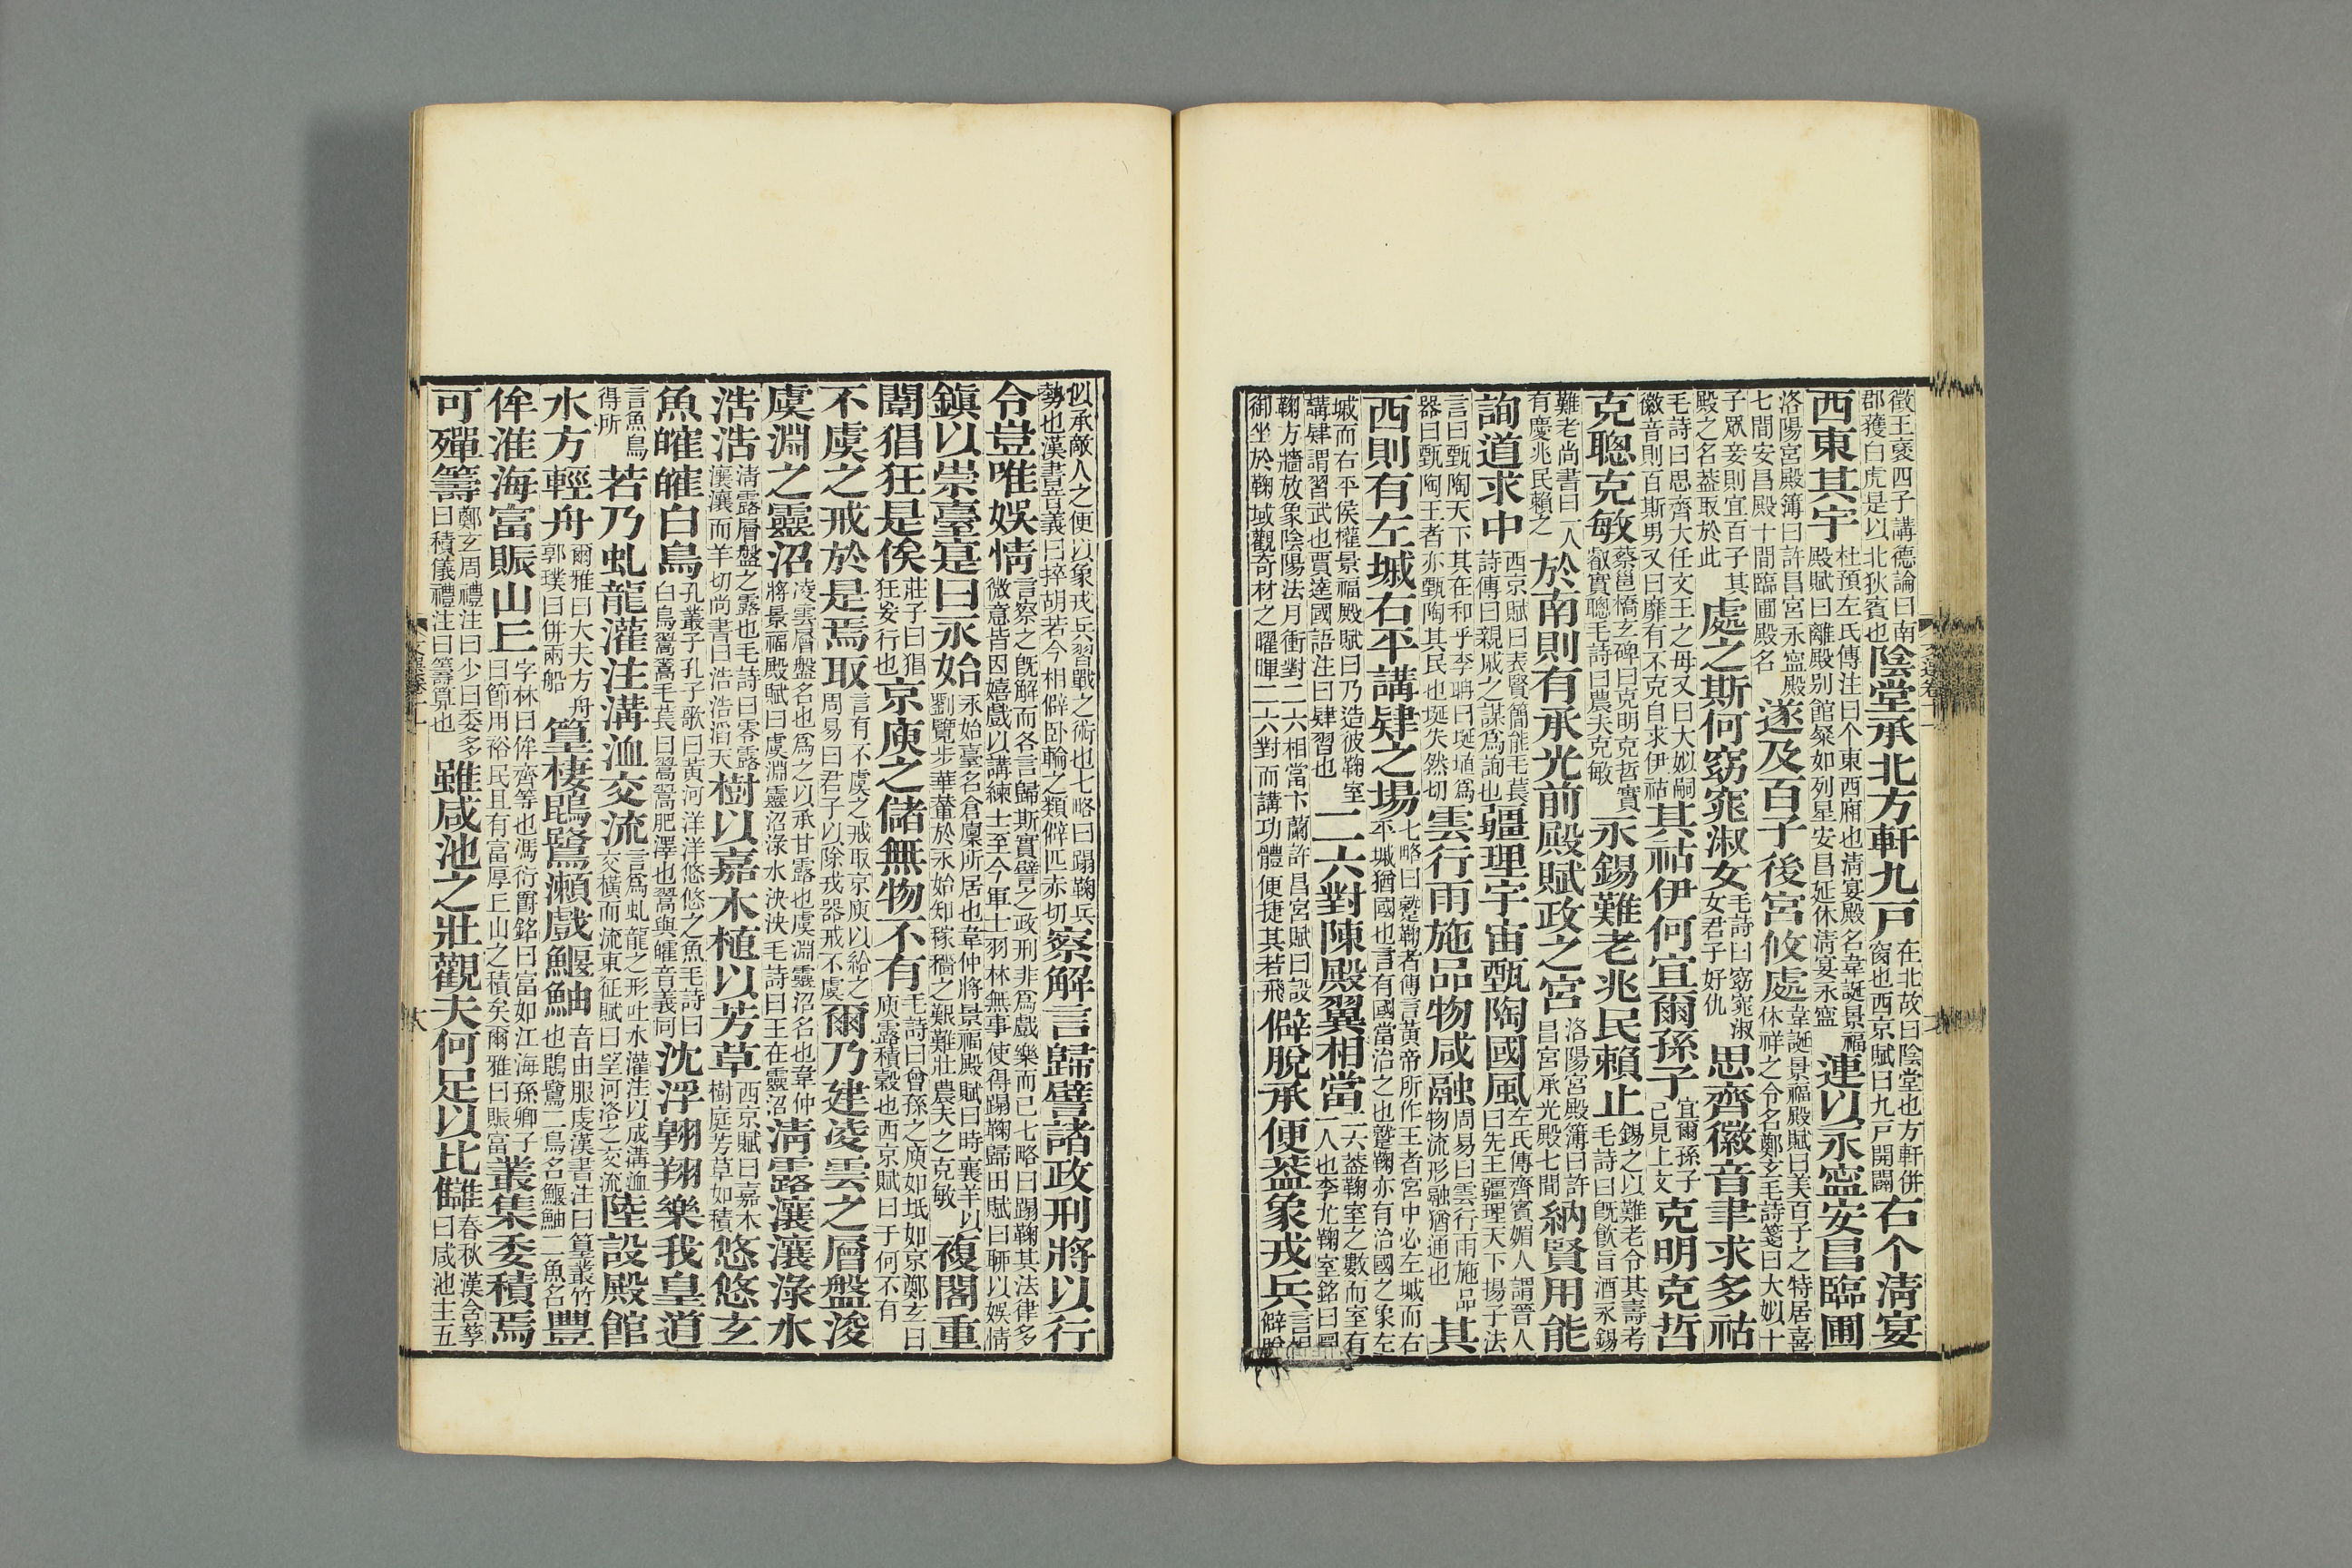 徵王襃四子講德論曰南郡獲白虎是以北狄賓也陰堂承北方軒九戸在北故曰陰堂也方軒併窗也西京賦曰九戸開闢右个清宴
西東其宇杜預左氏傳注曰个東西廂也清宴殿名韋誕景福殿賦曰離殿别館粲如列星安昌延休清宴永寧連以永寧安昌臨圃
洛陽宮殿簿曰許昌宮永寧殿七間安昌殿十間臨圃殿名遂及百子後宮攸處韋誕景福殿賦曰美百子之特居嘉休祥之令名鄭玄毛詩箋曰大姒十
子眾妾則宜百子其殿之名葢取於此處之斯何窈窕淑女毛詩曰窈窕淑女君子好仇思齊徽音聿求多祜
毛詩曰思齊大任文王之母又曰大姒嗣徽音則百斯男又曰靡有不克自求伊祜其祜伊何宜爾孫子宜爾孫子已見上文克明克哲
克聰克敏蔡邕橋玄碑曰克明克哲實叡實聰毛詩曰農夫克敏永錫難老兆民賴止錫之以難老令其壽考毛詩曰既飲旨酒永錫
難老尚書曰一人有慶兆民賴之於南則有承光前殿賦政之宮洛陽宮殿簿曰許昌宮承光殿七間納賢用能
詢道求中西京賦曰表賢簡能毛萇詩傳曰親戚之謀爲詢也疆理宇宙甄陶國風左氏傳齊賓媚人謂晉人曰先王疆理天下揚子法
言曰甄陶天下其在和乎李聃曰埏埴爲器曰甄陶王者亦甄陶其民也埏失然切雲行雨施品物咸融周易曰雲行雨施品物流形融猶通也其
西則有左墄右平講肄之場七略曰蹵鞠者傳言黃帝所作王者宮中必左墄而右平墄猶國也言有國當治之也蹵鞠亦有治國之象左
墄而右平侯權景福殿賦曰乃造彼鞠室講肄謂習武也賈逵國語注曰肄習也二六對陳殿翼相當二六葢鞠室之數而室有一人也李尤鞠室銘曰
鞠方牆放象陰陽法月衝對二六相當卞蘭許昌宮賦曰設御坐於鞠域觀奇材之曜暉二六對而講功體便捷其若飛僻脫承便葢象戎兵言僻脫
似承敵人之便以象戎兵習戰之術也七略曰蹋鞠兵勢也漢書音義曰捽胡若今相僻臥輪之類僻匹赤切察解言歸譬諸政刑將以行
令豈唯娛情言察之既解而各言歸斯實譬之政刑非爲戲樂而已七略曰蹋鞠其法律多微意皆因嬉戲以講練士至今軍士羽林無事使得蹋鞠歸田賦曰聊以娛情
鎭以崇臺寔曰永始永始臺名倉廩所居也韋仲將景福殿賦曰時襄羊以劉覽步華輦於永始知稼穡之艱難壯農夫之克敏複閣重
闈猖狂是俟莊子曰猖狂妄行也京庾之儲無物不有毛詩曰曾孫之庾如坻如京鄭玄曰庾露積穀也西京賦曰于何不有
不虞之戒於是焉取言有不虞之戒取京庾以給之周易曰君子以除戎器戒不虞爾乃建凌雲之層盤浚
虞淵之靈沼凌雲層盤名也爲之以承甘露也虞淵靈沼名也韋仲將景福殿賦曰虞淵靈沼淥水泱泱毛詩曰王在靈沼清露瀼瀼淥水
浩浩清露層盤之露也毛詩曰零露瀼瀼而羊切尚書曰浩浩滔天樹以嘉木植以芳草西京賦曰嘉木樹庭芳草如積悠悠玄
魚皠皠白鳥孔叢子孔子歌曰黃河洋洋悠悠之魚毛詩曰白鳥翯翯毛萇曰翯翯肥澤也翯與皠音義同沈浮翺翔樂我皇道
言魚鳥得所若乃虬龍灌注溝洫交流言爲虬龍之形吐水灌注以成溝洫交橫而流東征賦曰望河洛之交流陸設殿館
水方輕舟爾雅曰大夫方舟郭璞曰併兩船篁棲鵾鷺瀨戲鰋鮋音由服虔漢書注曰篁叢竹也鵾鷺二鳥名鰋鮋二魚名豐
侔淮海富賑山丘字林曰侔齊等也馮衍爵銘曰富如江海孫卿子曰節用裕民且有富厚丘山之積矣爾雅曰賑富叢集委積焉
可殫籌鄭玄周禮注曰少曰委多曰積儀禮注曰籌算也雖咸池之壯觀夫何足以比讎春秋漢含孳曰咸池主五
文選卷十一
六